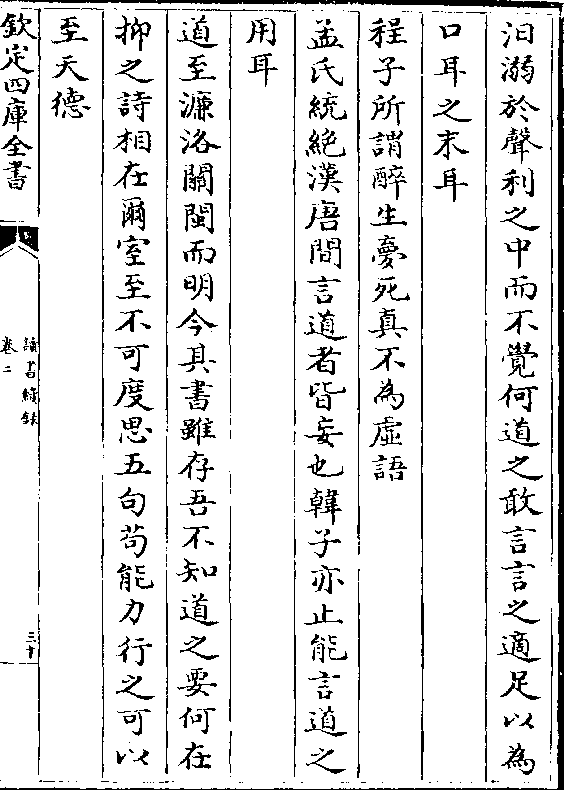 汩溺於聲利之中而不覺何道之敢言言之適足以為
口耳之末耳
程子所謂醉生夢死真不為虛語
孟氏統絶漢唐間言道者皆妄也韓子亦止能言道之
用耳
道至濂洛關閩而明今其書雖存吾不知道之要何在
抑之詩相在爾室至不可度思五句茍能力行之可以
至天德
欽定四庫全書
讀書續録
卷二
三十